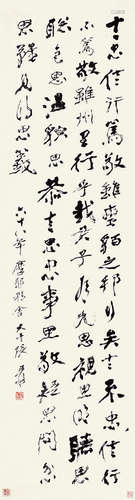 言忠信行篤敬雖蠻貊之邦行矣言不忠信行
不篤敬雖州里行乎哉君子有九思視思明聽思
聰色思溫貌思恭言思忠事思敬疑思問忿
思難見得思義
六十八年摩耶精舍大千張爰